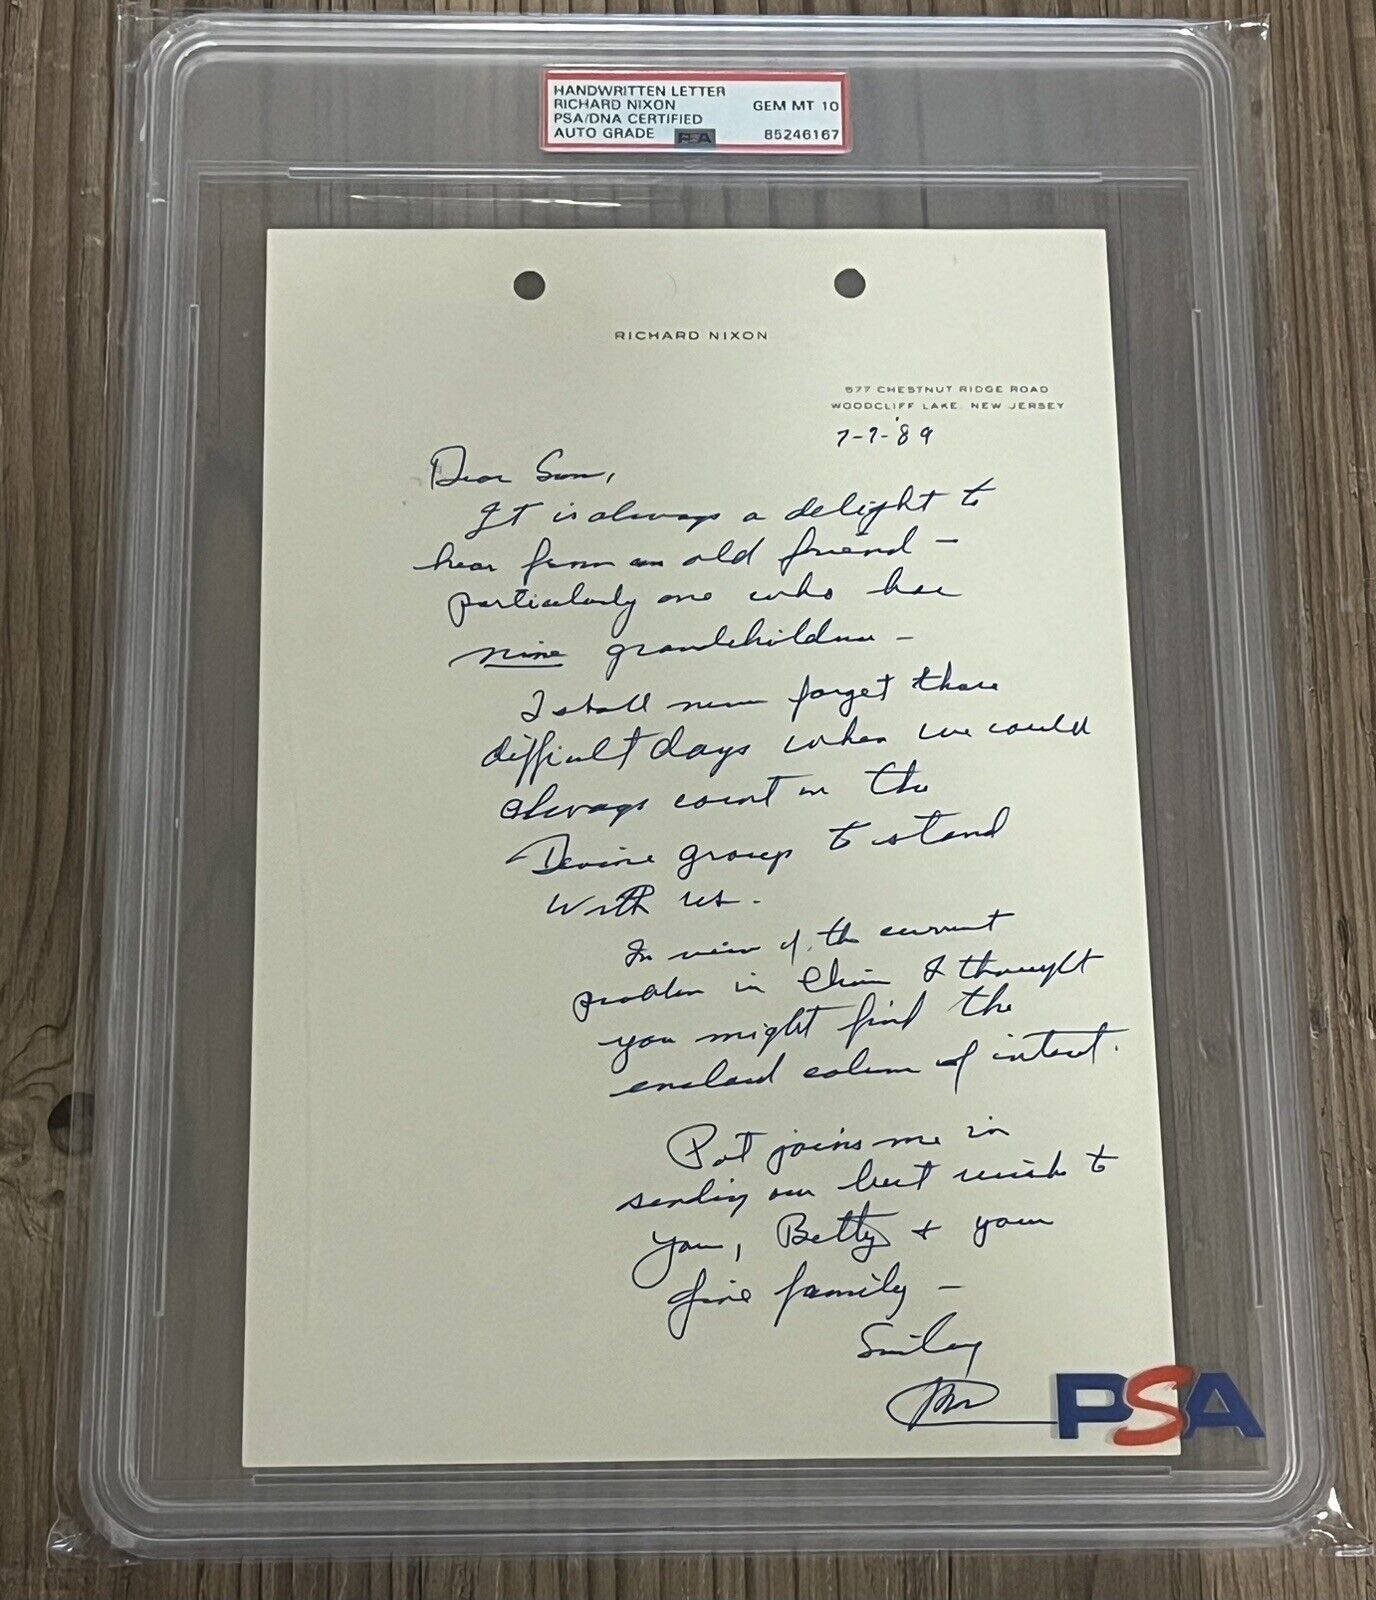 HANDWRITTEN LETTER
RICHARD NIXON GEM MT 10
PSA/DNA CERTIFIED
AUTO GRADE PSA 85246167
RICHARD NIXON
577 CHESTNUT RIDGE ROAD
WOODCLIFF LAKE, NEW JERSEY
7-7-'89
Dear Sam,
It is always a delight to
hear from an old friend -
particularly one who has
nine grandchildren -
I shall never forget those
difficult days when we could
always count on the
Devine group to stand
with us.
In view of the current
problem in China I thought
you might find the
enclosed column of interest.
Pat joins me in
sending our best wishes to
you, Betty + your
fine family -
Sincerely
RN
PSA